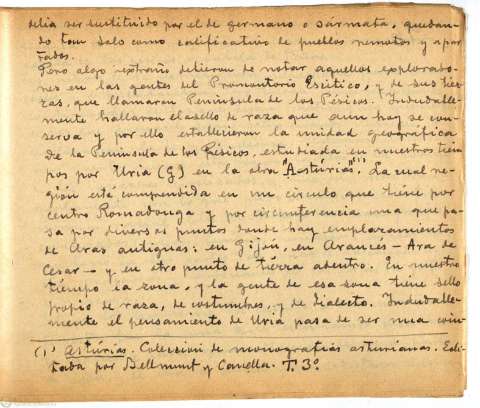 debía ser sustituido por el de germano o sármata, quedan-
do tan solo como calificativo de pueblos remotos y apar-
tados.
Pero algo extraño debieron de notar aquellos explorado-
res en las gentes del Promontorio Escítico, y de sus tier-
zas, que llamaron Península de los Pésicos. Indudable-
mente hallaron el sello de raza que aun hoy se con-
serva y por ello establecieron la unidad geográfica
de la Península de los Pésicos, estudiada en nuestros tiem
pos por Uría (G) en la obra "Astúrias"(1). La cual re-
gión está comprendida en un círculo que tiene por
centro Romadonga y por circunferencia una que pa-
sa por diversos puntos donde hay emplazamientos
de Aras antiguas: en Gijón, en Arancés - Ara de
Cesar - y en otro punto de tierra adentro. En nuestro
tiempo la zona, y la gente de esa zona tiene sello
propio de raza, de costumbres, y de dialecto. Indudable-
mente el pensamiento de Uria pasa de ser una coin-
(1) Astúrias. Coleccion de monografías asturianas. Edi-
tada por Bellmunt y Canella. T. 3º